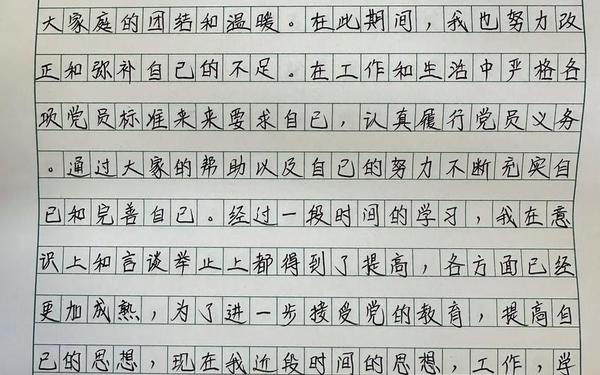 大家庭的团结和温暖。在此期间，我也努力改
正和弥补自己的不足。在工作和生活中严格各
项党员标准来来要求自己，认真履行党员义务
。通过大家的帮助以及自己的努力不断充实自
己和完善自己。经过一段时间的学习，我在意
识上和言谈举止上都得到了提高，各方面已经
更加成熟，为了进一步接受党的教育，提高自
己的思想，现在我近段时间的思想，工作，学